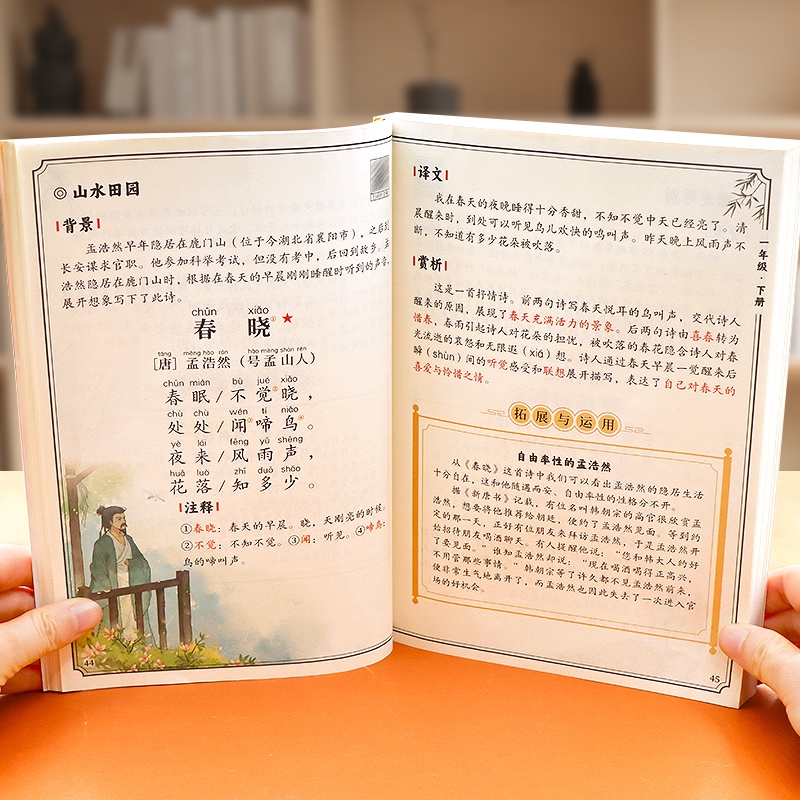 山水田园
背景
孟浩然早年隐居在鹿门山（位于今湖北省襄阳市），之后到
长安谋求官职。他参加科举考试，但没有考中，后回到故乡。孟
浩然隐居在鹿门山时，根据在春天的早晨刚刚睡醒时听到的声音，
展开想象写下了此诗。
chūn xiǎo
春 晓①★
táng mèng hào rán hào mèng shān rén
［唐］孟浩然（号孟山人）
chūn mián bù jué xiǎo
春眠/不觉②晓，
chù chù wén tí niǎo
处处/闻③啼鸟④。
yè lái fēng yǔ shēng
夜来/风雨声，
huā luò zhī duō shǎo
花落/知多少。
注释
①春晓：春天的早晨。晓，天刚亮的时候。
②不觉：不知不觉。③闻：听见。④啼鸟：
鸟的啼叫声。
44
译文
我在春天的夜晚睡得十分香甜，不知不觉中天已经亮了。清
晨醒来时，到处可以听见鸟儿欢快的鸣叫声。昨天晚上风雨声不
断，不知道有多少花朵被吹落。
赏析
这是一首抒情诗。前两句诗写春天悦耳的鸟叫声，交代诗人
醒来的原因，展现了春天充满活力的景象。后两句诗由喜春转为
惜春，春雨引起诗人对花朵的担忧，被吹落的春花隐含诗人对春
光流逝的哀怨和无限遐（xiá）想。诗人通过春天早晨一觉醒来后
瞬（shùn）间的听觉感受和联想展开描写，表达了自己对春天的
喜爱与怜惜之情。
拓展与运用
自由率性的孟浩然
从《春晓》这首诗中我们可以看出孟浩然的隐居生活
十分自在，这和他随遇而安、自由率性的性格分不开。
据《新唐书》记载，有位名叫韩朝宗的高官很欣赏孟
浩然，想要将他推荐给朝廷，便约了孟浩然见面。等到约
定的那一天，正好有位朋友来拜访孟浩然，于是孟浩然开
始招待朋友喝酒聊天。有人提醒他说：“您和韩大人约好
了要见面。”谁知孟浩然却说：“现在喝酒喝得正高兴，
不用管那些事情。”韩朝宗等了许久都不见孟浩然前来，
便非常生气地离开了，而孟浩然也因此失去了一次进入官
场的好机会。
一年级·下册
45